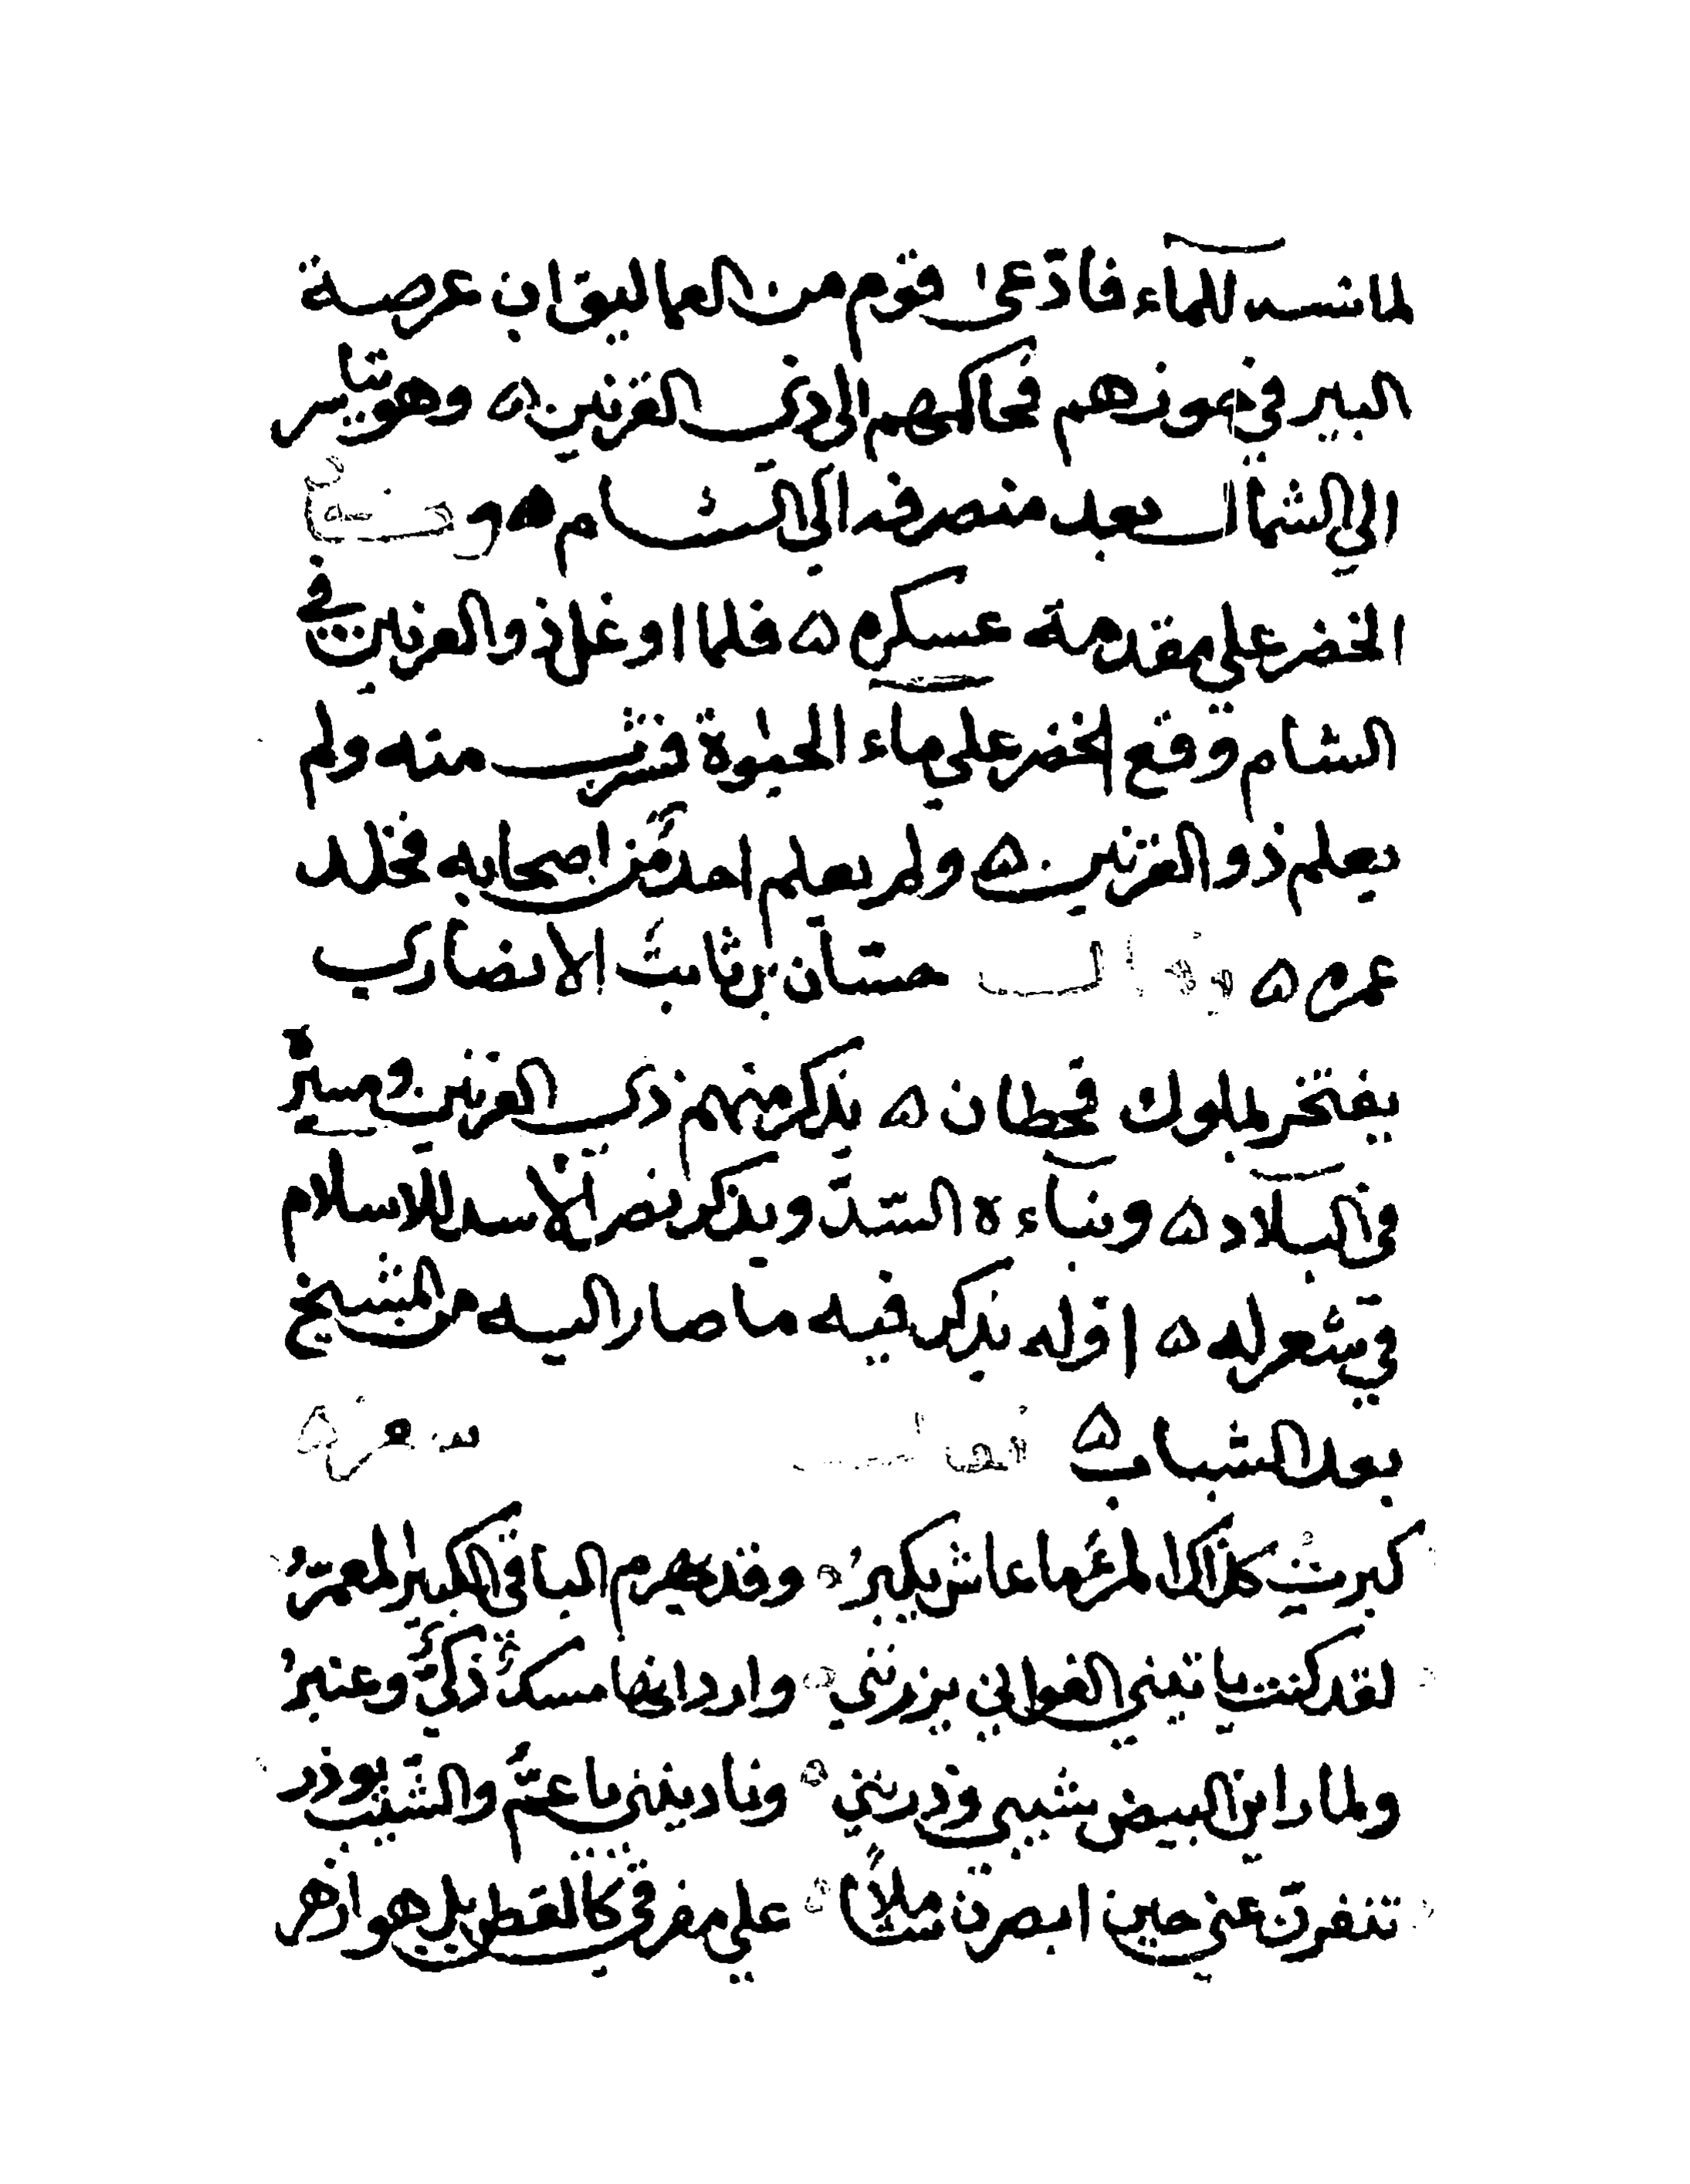 لماشيته للماء فادعى قوم من العماليق ان عرصة
البير في حوزهم فحاكمهم الى ذي القرنين ۵ وهو يتاسر
الي الشمال بعد منصرفه الى الشام ۵ و
الخضر علي مقدمة عسكره ۵ فلما اوغل ذو القرنين في
الشام وقع الخضر علي ماء الحيوة فشرب منه ولم
يعلم ذو القرنين ۵ ولم يعلم احد من اصحابه فخلد
عمره ۵ وقال حسّان بن ثابت الانصاري
يفتخر بملوك قحطان ۵ يذكر منهم ذي القرنين ومسيره
في البلاد ۵ وبناءه السدّ ويذكر نصر الاسد للاسلام
في شعر له ۵ اوّله يذكر فيه ما صار اليه من الشيخ
بعد الشباب ۵ فقال شعر ۵
كبرت كذاك المرء ما عاش يكبر وقد يهرم الباقي الكبير المعمّر
لقد كنت ياتيني الغواني يزرنني واردانها مسك ذكيّ وعنبر
ولما راين البيض شيبي وذرنني وناديننى يا عمّ والشيب يوذر
تنفرن عني حين ابصرن شاملاً علي مفرقي كالقطن بل هو ازهر